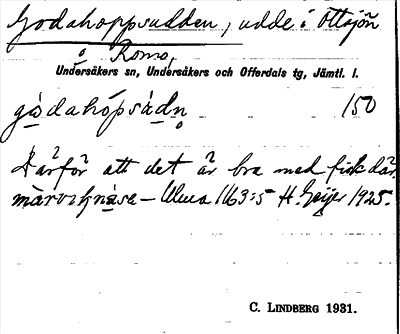 Godahoppsudden, udde i Ottsjön
å Romo,
Undersåkers sn, Undersåkers och Offerdals tg, Jämtl. l.
gòdahópsùdn 150
Därför att det är bra med fisk där.
Ulma 1163:5 H. Geijer 1925.
C. LINDBERG 1931.